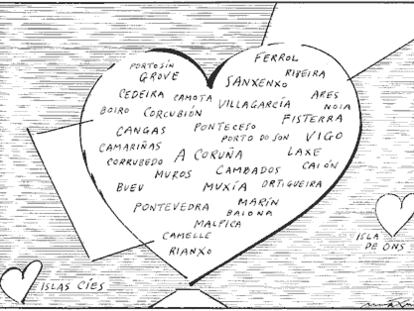 PORTOSÍN
FERROL
GROVE
RIBEIRA
SANXENXO
CEDEIRA
CAMOTA
ARES
BOIRO
CORCUBIÓN
VILLAGARCÍA
NOIA
FISTERRA
CANGAS
PONTECESO
PORTO DO SON
VIGO
CAMARIÑAS
CORRUBEDO
A CORUÑA
LAXE
CAIÓN
MUROS
CAMBADOS
BUEU
MUXÍA
ORTIGUEIRA
PONTEVEDRA
MARÍN
BAIONA
MALPICA
CAMELLE
RIANXO
ISLA
DE ONS
ISLAS CÍES